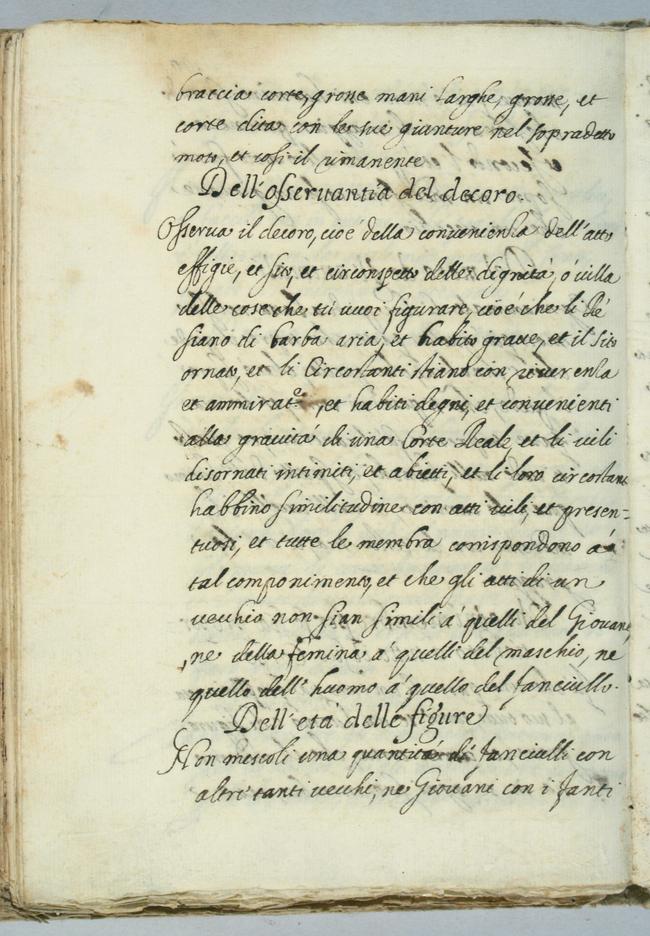 braccia corte, grosse mani larghe, grosse, et
corte dita con le sue giunture nel sopradetto
moto, et cosi il rimanente
Dell'osservantia del decoro
Osserva il decoro, cioé della convenienza dell'atto
effigie, et sito, et circonspetto delle dignitá, ó viltà
delle cose che tú vuoi figurare, cioé che li Ré
siano di barba aria, et habito grave, et il sito
ornato, et li Circostanti stiano con riverenza
et ammirat.e, et habiti degni, et convenienti
alla gravitá di una Corte Reale, et li vili
disornati intimiti, et abietti, et li loro circostanti
habbino similitudine con atti vili, et presen-
tuosi, et tutte le membra corispondono á
tal componimento, et che gli atti di un
vecchio non sian simili á quelli del Giovane
, ne della femina á quelli del maschio, né
quello dell'huomo á quello del fanciullo.
Dell'etá delle figure
Non mescoli una quantitá di fanciulli con
altri tanti vecchi, né Giovani con i fanti